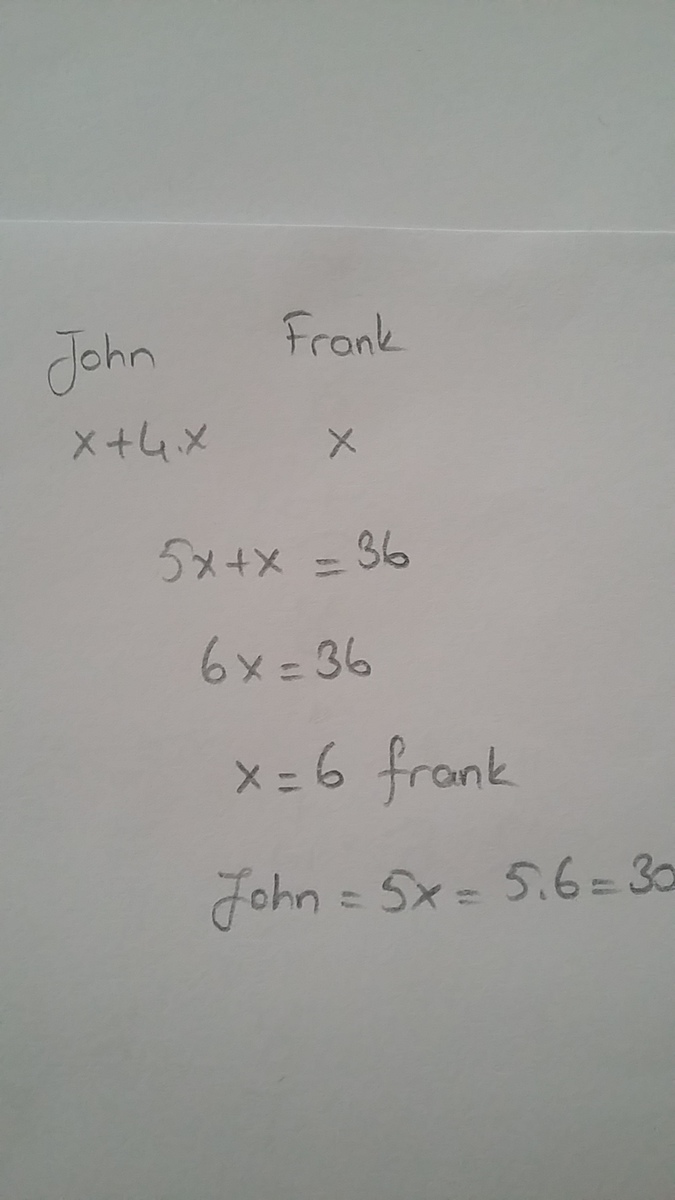 John Frank
x+4.x x
5x+x = 36
6x = 36
x = 6 frank
John = 5x = 5.6 = 30